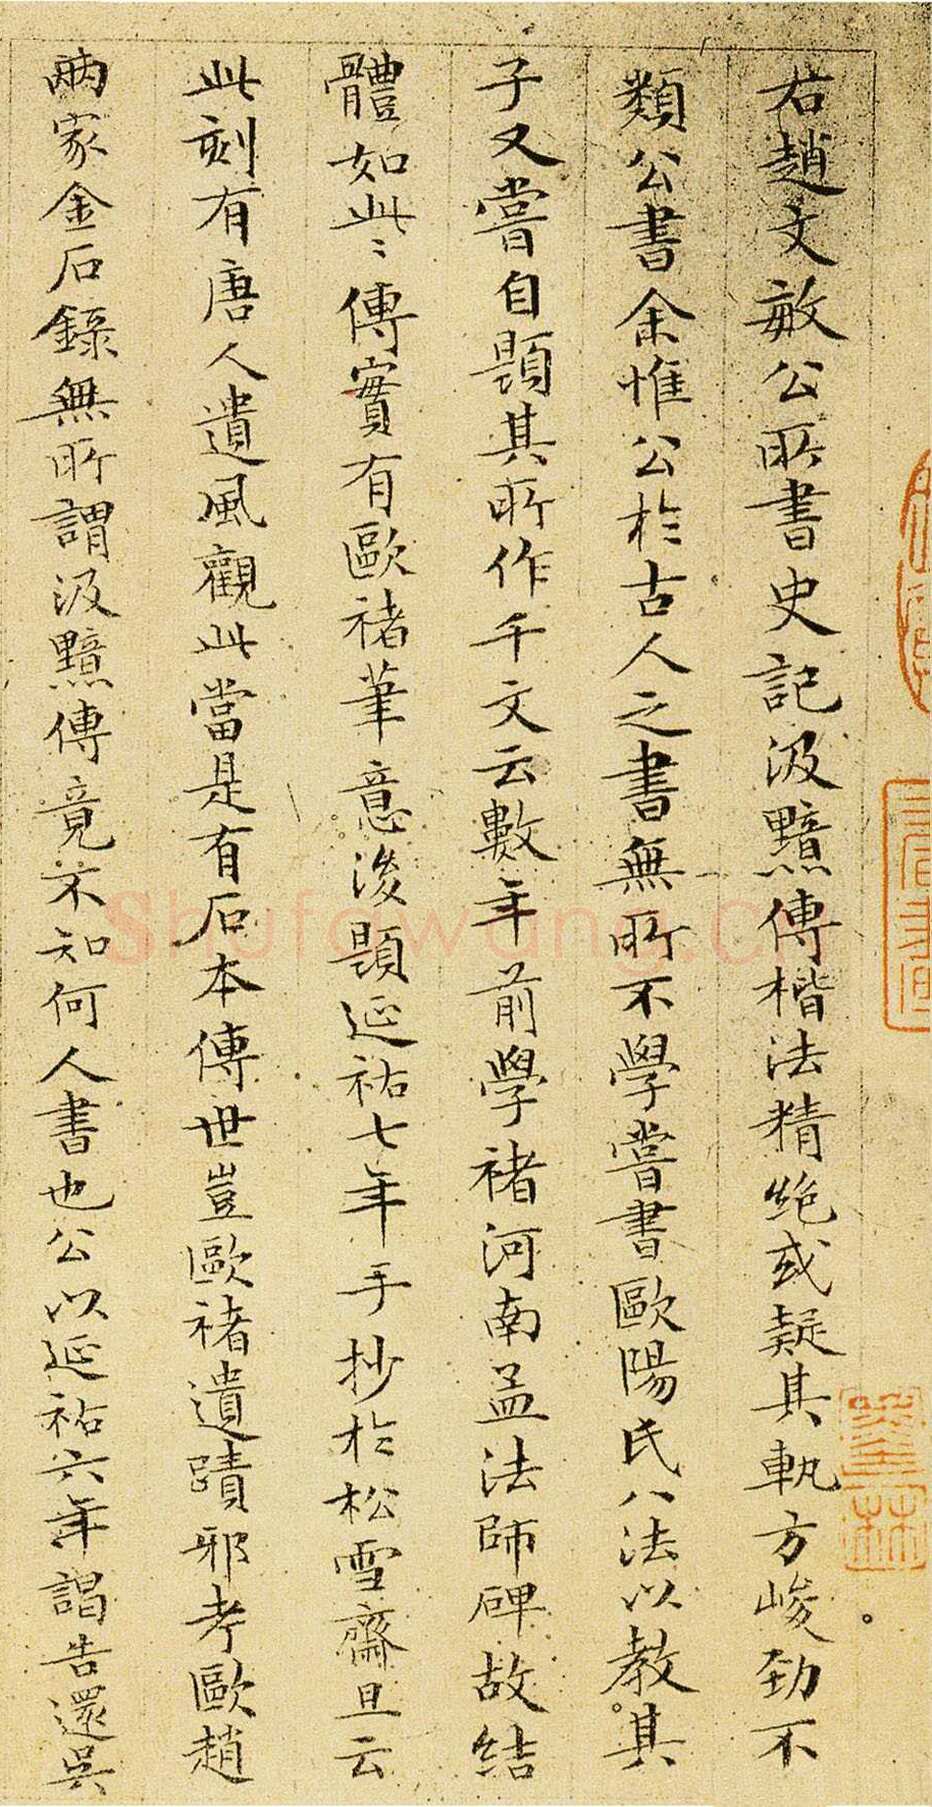 右趙文敏公所書史記汲黯傳楷法精絶或疑其軌方峻勁不
類公書余惟公於古人之書無所不學嘗書歐陽氏八法以教其
子又嘗自題其所作千文云數年前學褚河南孟法師碑故結
體如此〻傳實有歐褚筆意後題延祐七年手抄於松雪齋且云
此刻有唐人遺風觀此當是有石本傳世豈歐褚遺蹟邪考歐趙
兩家金石錄無所謂汲黯傳竟不知何人書也公以延祐六年謁告還吳
Shufawang.cn